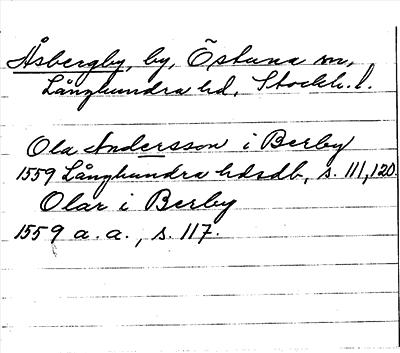 Åsbergby, by, Östuna sn,
Långhundra hd, Stockh. l.
Ola Andersson i Berby
1559 Långhundra hdsdb, s. 111, 120.
Olar i Berby
1559 a. a., s. 117.